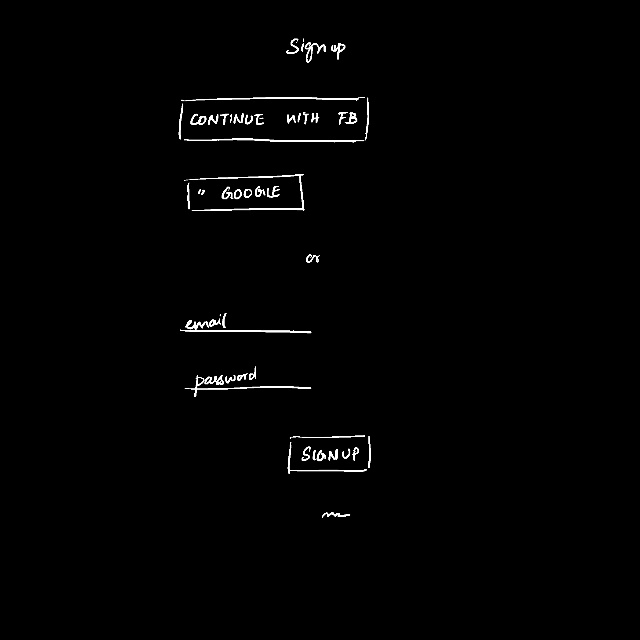 Sign up
CONTINUE WITH FB
" GOOGLE
or
email
password
SIGNUP